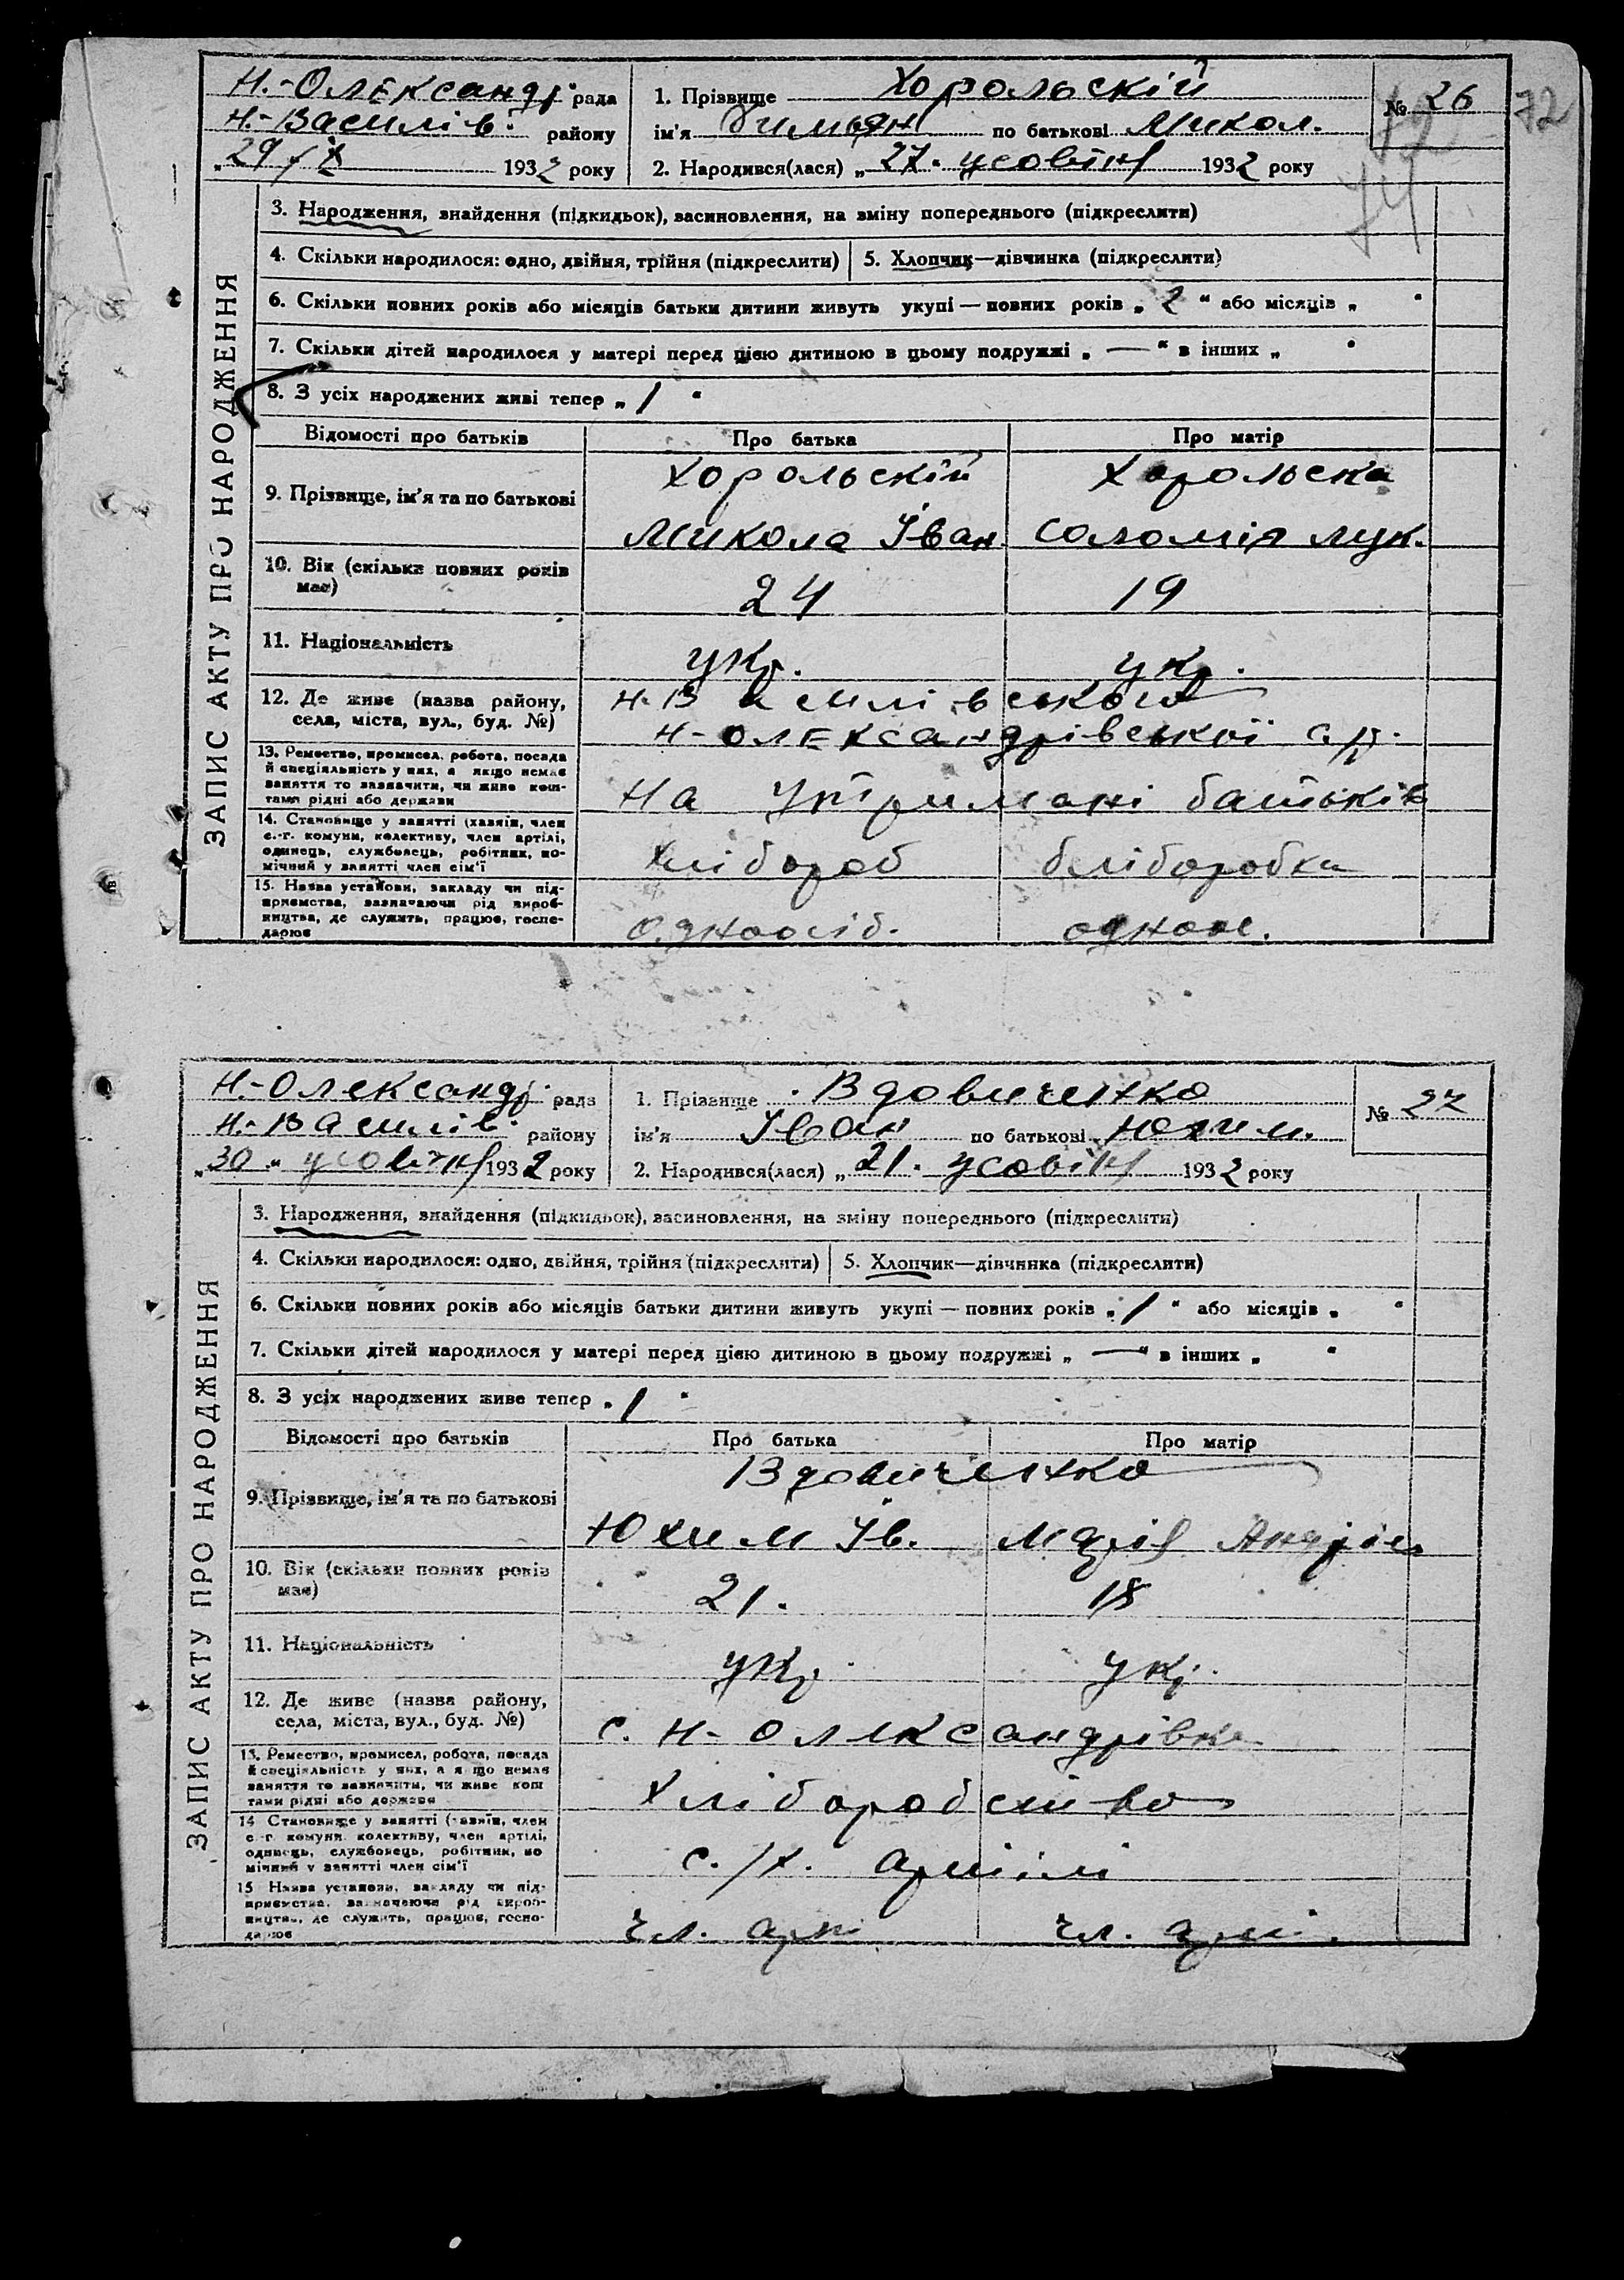 Н.-Олександр. рада
Н.-Василів. району
„29/X 1932 року
1. Прізвище Хорольскій
ім'я по батькові Микол.
2. Народився(лася) „27. жовтня 1932 року
№ 26
72
72
74
ЗАПИС АКТУ ПРО НАРОДЖЕННЯ
3. Народження, знайдення (підкидьок), засиновлення, на зміну попереднього (підкреслити)
4. Скільки народилося: одно, двійня, трійня (підкреслити)
5. Хлопчик—дівчинка (підкреслити)
6. Скільки повних років або місяців батьки дитини живуть укупі — повних років „ 2 “ або місяців „ “
7. Скільки дітей народилося у матері перед цією дитиною в цьому подружжі „ — “ в інших „ “
8. З усіх народжених живі тепер „ 1 “
Відомості про батьків
Про батька
Про матір
9. Прізвище, ім'я та по батькові
Хорольскій
Микола Іван.
Хорольска
Соломія Лук.
10. Вік (скільки повних років
має)
24
19
11. Національність
укр.
укр.
12. Де живе (назва району,
села, міста, вул., буд. №)
Н.Василівського
Н-Олександрівської с/р.
13. Ремество, промисел, робота, посада
й спеціяльність у них, а якщо немає
заняття то зазначити, чи живе кош-
тами рідні або держави
На утримані батьків
14. Становище у занятті (хазяїн, член
с.-г. комуни, колективу, член артілі,
одинець, службовець, робітник, по-
мічний у занятті член сім'ї
Хлібороб
хліборобка
15. Назва установи, закладу чи під-
приємства, зазначаючи рід вироб-
ництва, де служить, працює, госпо-
дарює
Одноосіб.
одноос.
Н.-Олександр. рада
Н.-Василів. району
„30“ жовтня 1932 року
1. Прізвище Вдовиченко
ім'я Іван по батькові Юхим.
2. Народився(лася) „21. жовтня 1932 року
№ 27
ЗАПИС АКТУ ПРО НАРОДЖЕННЯ
3. Народження, знайдення (підкидьок), засиновлення, на зміну попереднього (підкреслити)
4. Скільки народилося: одно, двійня, трійня (підкреслити)
5. Хлопчик—дівчинка (підкреслити)
6. Скільки повних років або місяців батьки дитини живуть укупі — повних років „ 1 “ або місяців „ “
7. Скільки дітей народилося у матері перед цією дитиною в цьому подружжі „ — “ в інших „ “
8. З усіх народжених живе тепер „ 1 “
Відомості про батьків
Про батька
Про матір
9. Прізвище, ім'я та по батькові
Вдовиченко
Юхим Ів.
Марія Андрієв
10. Вік (скільки повних років
має)
21.
18
11. Національність
укр.
укр.
12. Де живе (назва району,
села, міста, вул., буд. №)
с. Н-Олександрівка
13. Ремество, промисел, робота, посада
й спеціяльність у них, а якщо немає
заняття то зазначити, чи живе кош
тами рідні або держави
Хліборобство
14 Становище у занятті (хазяїн, член
с.-г. комуни, колективу, член артілі,
одинець, службовець, робітник, по
мічний у занятті член сім'ї
с./х. артілі
15 Назва установи, закладу чи під-
приємства, зазначаючи рід вироб-
ництва, де служить, працює, госпо-
дарює
чл. арт.
чл. арт.